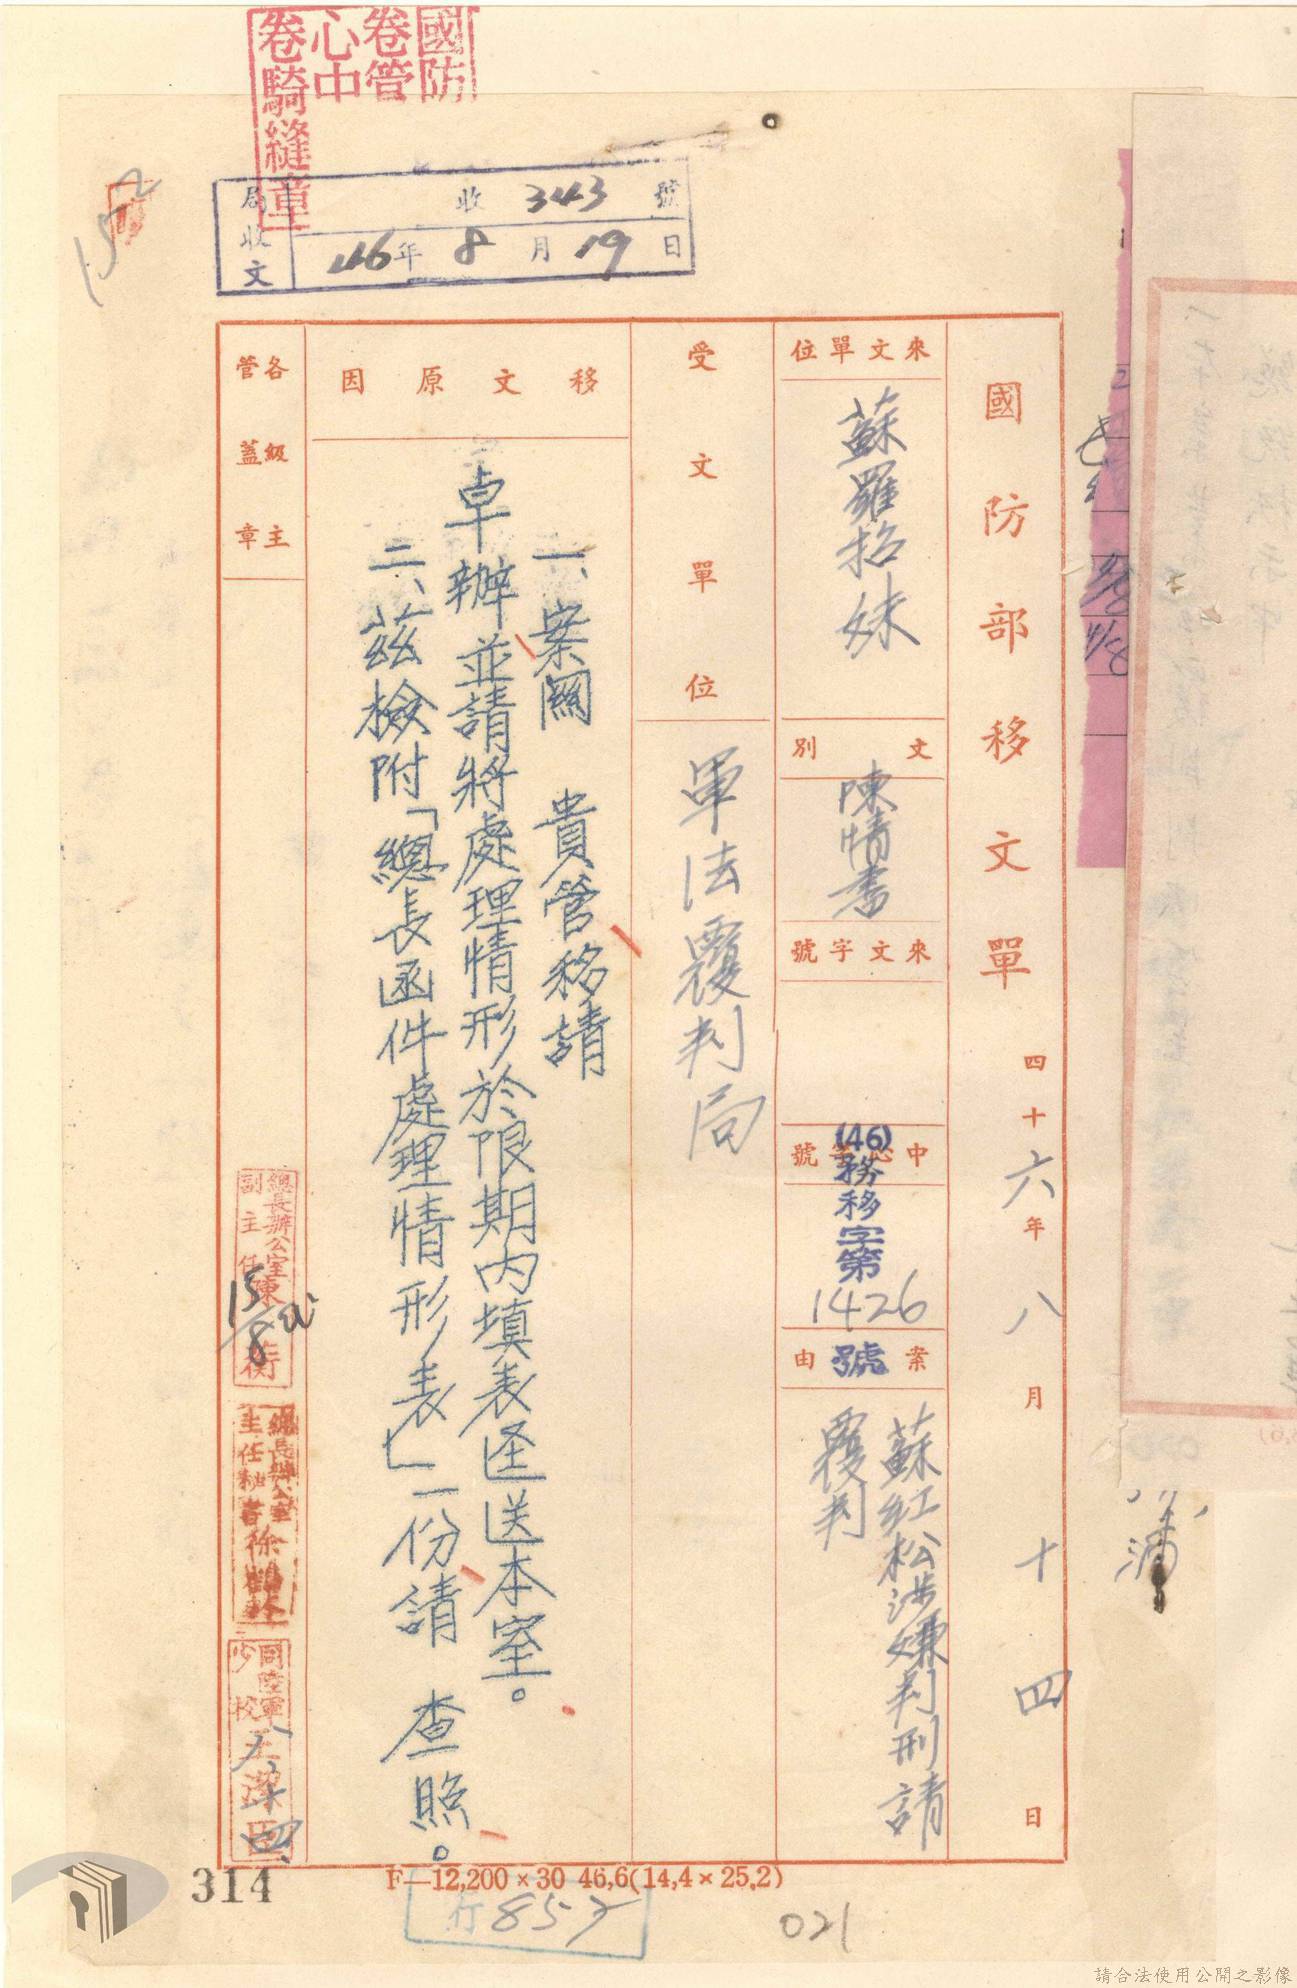 國防
卷管
心中
卷騎縫章
152
局收文
收 343 號
46年 8 月 19 日
國防部移文單
四十六年八月十四日
來文單位
蘇羅招妹
文別
陳情書
來文字號
中心字號
(46)務移字第
1426
號
案由
蘇紅松涉嫌判刑請
覆判
受文單位
軍法覆判局
移文原因
一、案關 貴管移請
卓辦並請將處理情形於限期內填表逕送本室。
二、茲檢附「總長函件處理情形表」一份請 查照。
各級主
管蓋章
總長辦公室
副主任陳衡
15/8
總長辦公室
主任秘書徐
同陸軍
少校王潔
八、十四
314
F—12,200×30 46,6(14,4×25,2)
行 857
021
請合法使用公開之影像